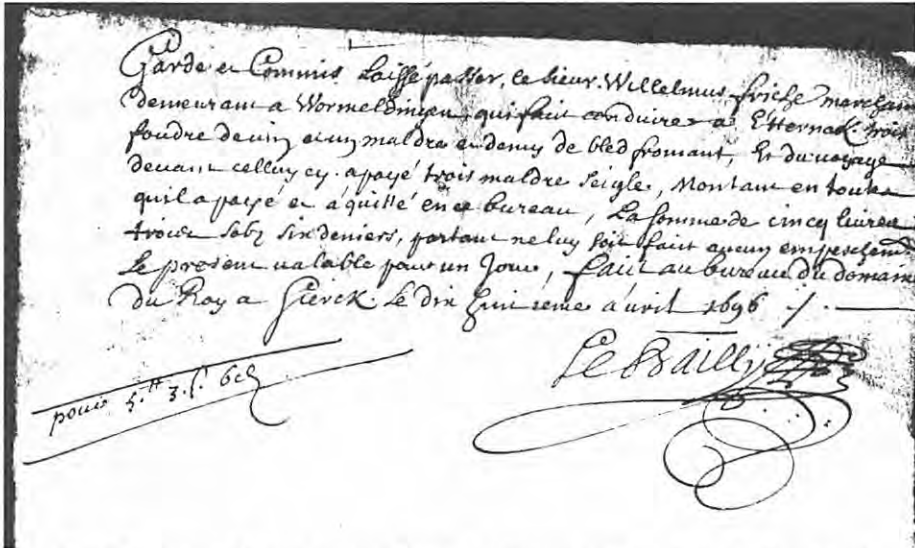 Garde et Commis Laissé passer, le sieur Willelmus friche marchan
demeurant a Wormeldingen, qui fait conduire a Etternack trois
foudre de vin et un maldre et demy de bled fromant, Et du voyage
devant celluy cy a payé trois maldre seigle, Montant en toutes
quil a payé et aquitté en ce bureau, La somme de cincq livres
trois solz six deniers, partant ne luy soit fait aucun empeschem
Le present valable pour un Jour, fait au bureau du domain
du Roy a Sierck le dix huitieme avril 1696 /. —
Le Bailly
pour 5.tt 3.s. 6d